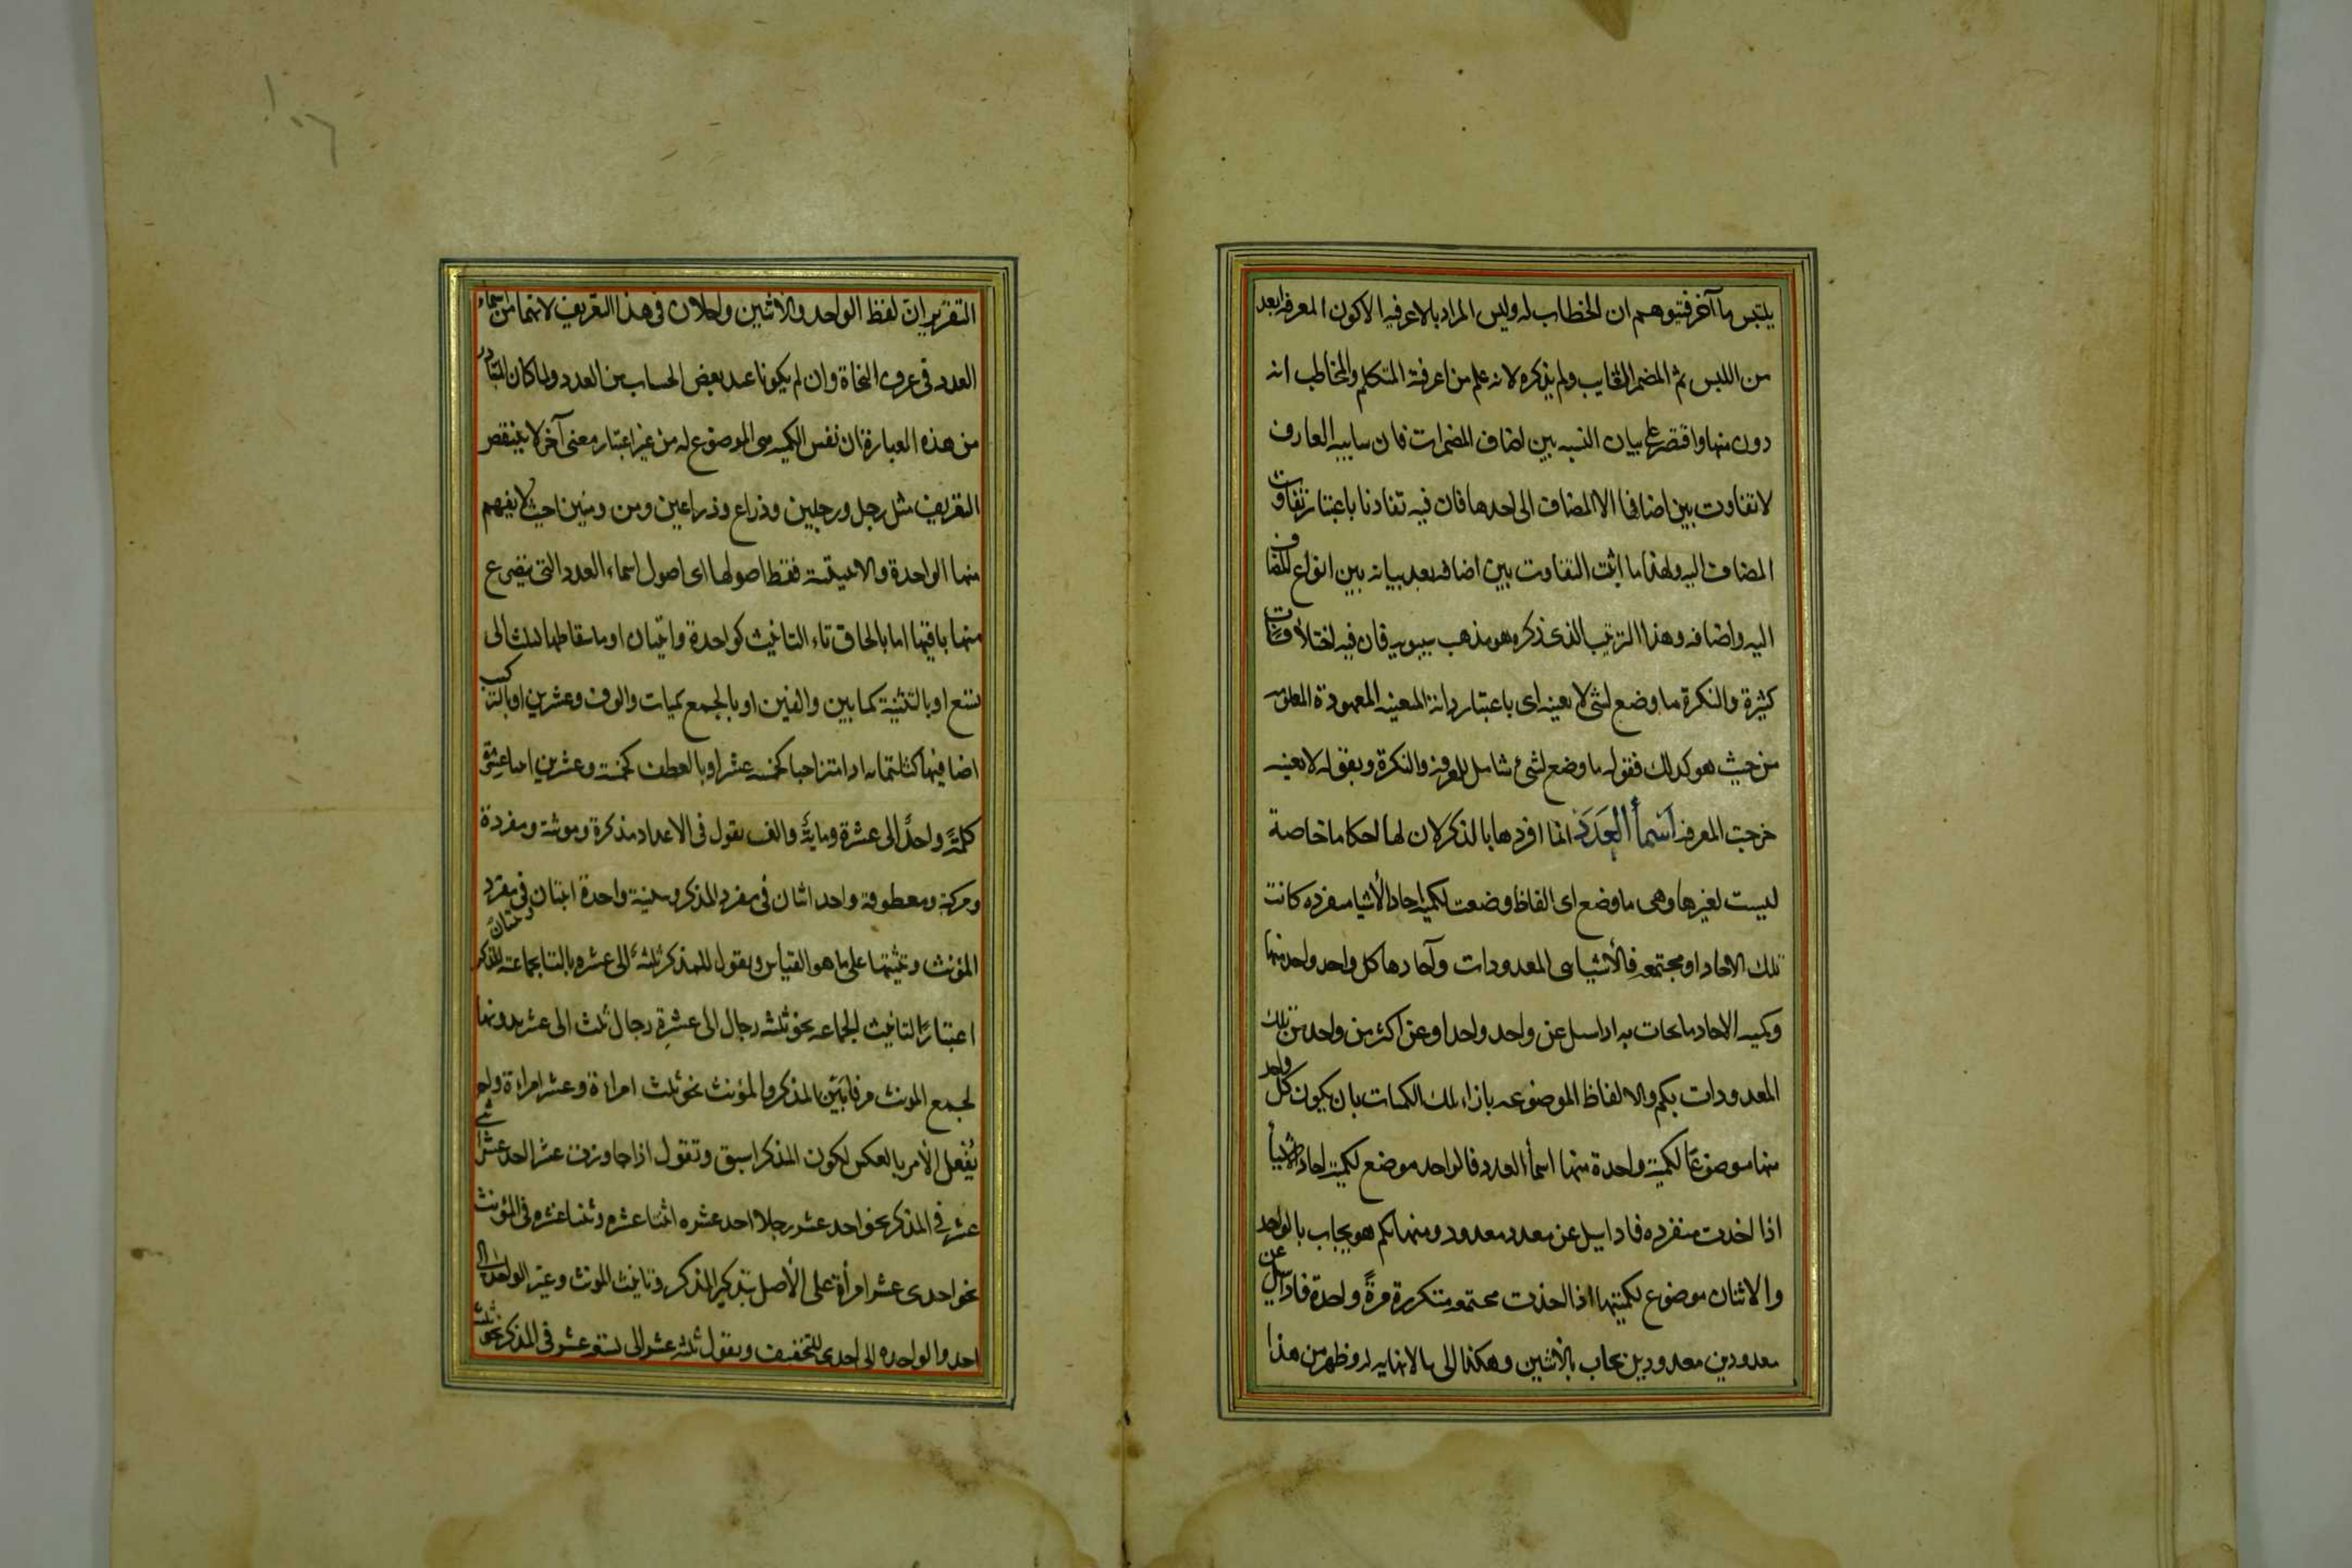 يلتبس بآخر فيتوهم ان الخطاب له وليس المراد بالاعرفية الا كون المعرفة ابعد
من اللبس ثم المضمر الغايب ولم يذكره لانه علم من اعرفية المتكلم والمخاطب انه
دون منها واقتصر على بيان النسبه بين اصناف المضمرات فان سايبه العارف
لا تفاوت بين اصنافها الا المضاف الى احدها فان فيه تفاوتا باعتبار تفاوت
المضاف اليه ولهذا ما اثبت التفاوت بين اضافه بعد بيانه بين انواع المضاف
اليه واضافه وهذا الترتيب الذى ذكره هو مذهب سيبويه فان فيه اختلافات
كثيرة والنكرة ما وضع لشئ لا بعينه اى باعتبار ذاته المعينه المعهودة المعلومه
من حيث هو كذلك فقوله ما وضع لشئ شامل للمعرفه والنكرة وبقوله لا بعينه
خرجت المعرفه اسمأ العدد انما افردها بالذكر لان لها احكاما خاصة
ليست لغيرها وهى ما وضع اى الفاظ وضعت لكمية احاد الأشيا منفرده كانت
تلك الاحاد او مجتمعه فالأشيا هى المعدودات وآحادها كل واحد واحد منها
وكميه الاحاد ما يجاب به اذا سئل عن واحد واحد او عن اكثر من واحد من تلك
المعدودات بكم والالفاظ الموضوعه بازاء تلك الكميات بان يكون كل واحد
منها موضوعًا لكمية واحدة منها اسمأ العدد فالواحد موضع لكمية احاد الأشيأ
اذا اخذت منفرده فاذا سيل عن معدد معدود منها بكم هو يجاب بالواحد
والاثنان موضوع لكميتها اذا اخذت مجتمعه متكررة مرةً واحدة فاذا سيل عن
معدودين معدودين يجاب بالاثنين وهكذا الى ما لا نهايه له وظهر من هذا
التقرير ان لفظ الواحد والاثنين داخلان فى هذا التعريف لانهما من اسماء
العدد فى عرف النحاة وان لم يكونا عند بعض الحساب من العدد ولما كان المتبادر
من هذه العبارة ان نفس الكميه هى الموضوع له من غير اعتبار معنى آخر لا ينتقض
التعريف مثل رجل ورجلين وذراع وذراعين ومن ومنين حيث لا يفهم
منها الواحدة والاثنينية فقط اصولها اى اصول اسماء العدد التى يتفرع
منها باقيها اما بالحاق تاء التانيث كواحدة واثنتان او باسقاطها كثلث الى
تسع او بالتثنية كمايتين والفين او بالجمع كميات والوف وعشرين او بالتركيب
اضافيا كثلثمايه او امتزاجيا كخمسه عشر او بالعطف كخمسة وعشرين اثنتا عشرة
كلمةً واحدٌ الى عشرة ومايةٌ والف تقول فى الاعداد مذكرة ومونثة ومفردة
ومركبة ومعطوفة واحد اثنان فى مفرد المذكر وتثنيته واحدة اثنتان فى مفرد
المؤنث وتثنيتها على ما هو القياس وتقول للمذكر ثلثةٌ الى عشره بالتا بجماعة المذكر
اعتبارًا لتانيث الجماعه نحو ثلثه رجال الى عشرة رجال ثلث الى عشر بدونها
لجمع المونث فرقا بين المذكر والمؤنث نحو ثلث امراءة وعشر امراءة ولم
يُفعل الأمر بالعكس لكون المذكر اسبق وتقول اذا جاوزت عشر احد عشر اثنى
عشر فى المذكر نحو احد عشر رجلا احد عشره اثنتا عشره وثنتا عشره فى المؤنث
نحو احدى عشر امرأة على الأصل بتذكير المذكر وتانيث المونث وغير الواحد الى
احد والواحده الى احدى للتخفيف وتقول ثلثه عشر الى تسعه عشر فى المذكر نحو ثلثه